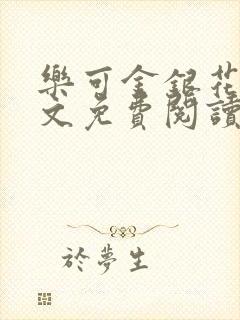 樂可金銀花
文免費閱讀
於夢生